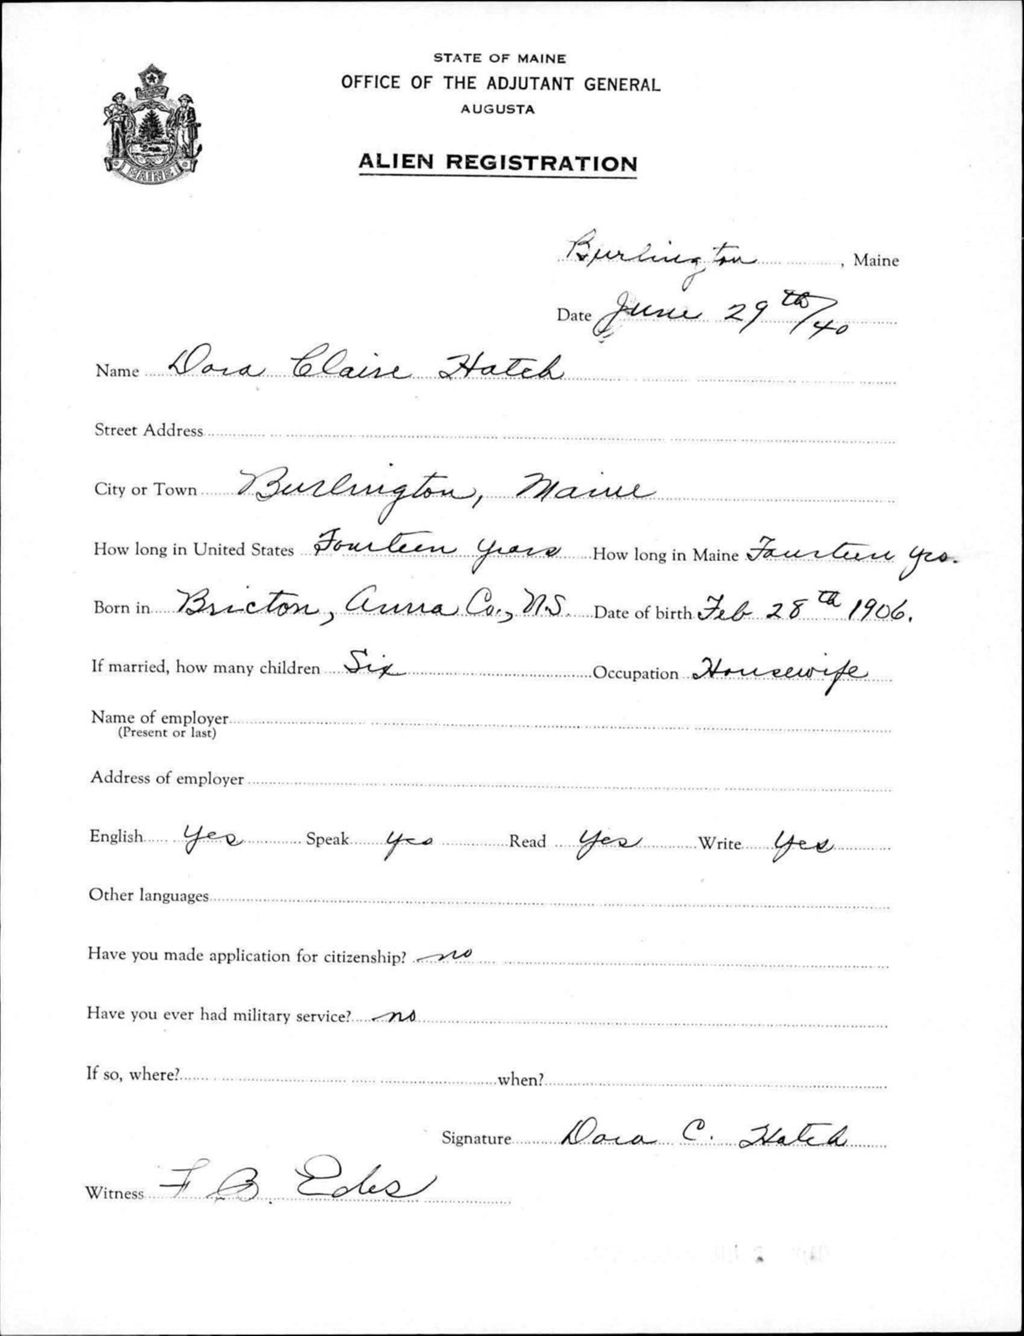 STATE OF MAINE
OFFICE OF THE ADJUTANT GENERAL
AUGUSTA
ALIEN REGISTRATION
MAINE
Burlington, Maine
Date June 29th/40
Name Dora Claire Hatch
Street Address
City or Town Burlington, Maine
How long in United States Fourteen years How long in Maine Fourteen yrs.
Born in Bricton, Anna Co., N.S. Date of birth Feb 28th 1906.
If married, how many children Six Occupation Housewife
Name of employer
(Present or last)
Address of employer
English Yes Speak yes Read Yes Write Yes
Other languages
Have you made application for citizenship? no
Have you ever had military service? no
If so, where? when?
Signature Dora C. Hatch
Witness F B. Edes